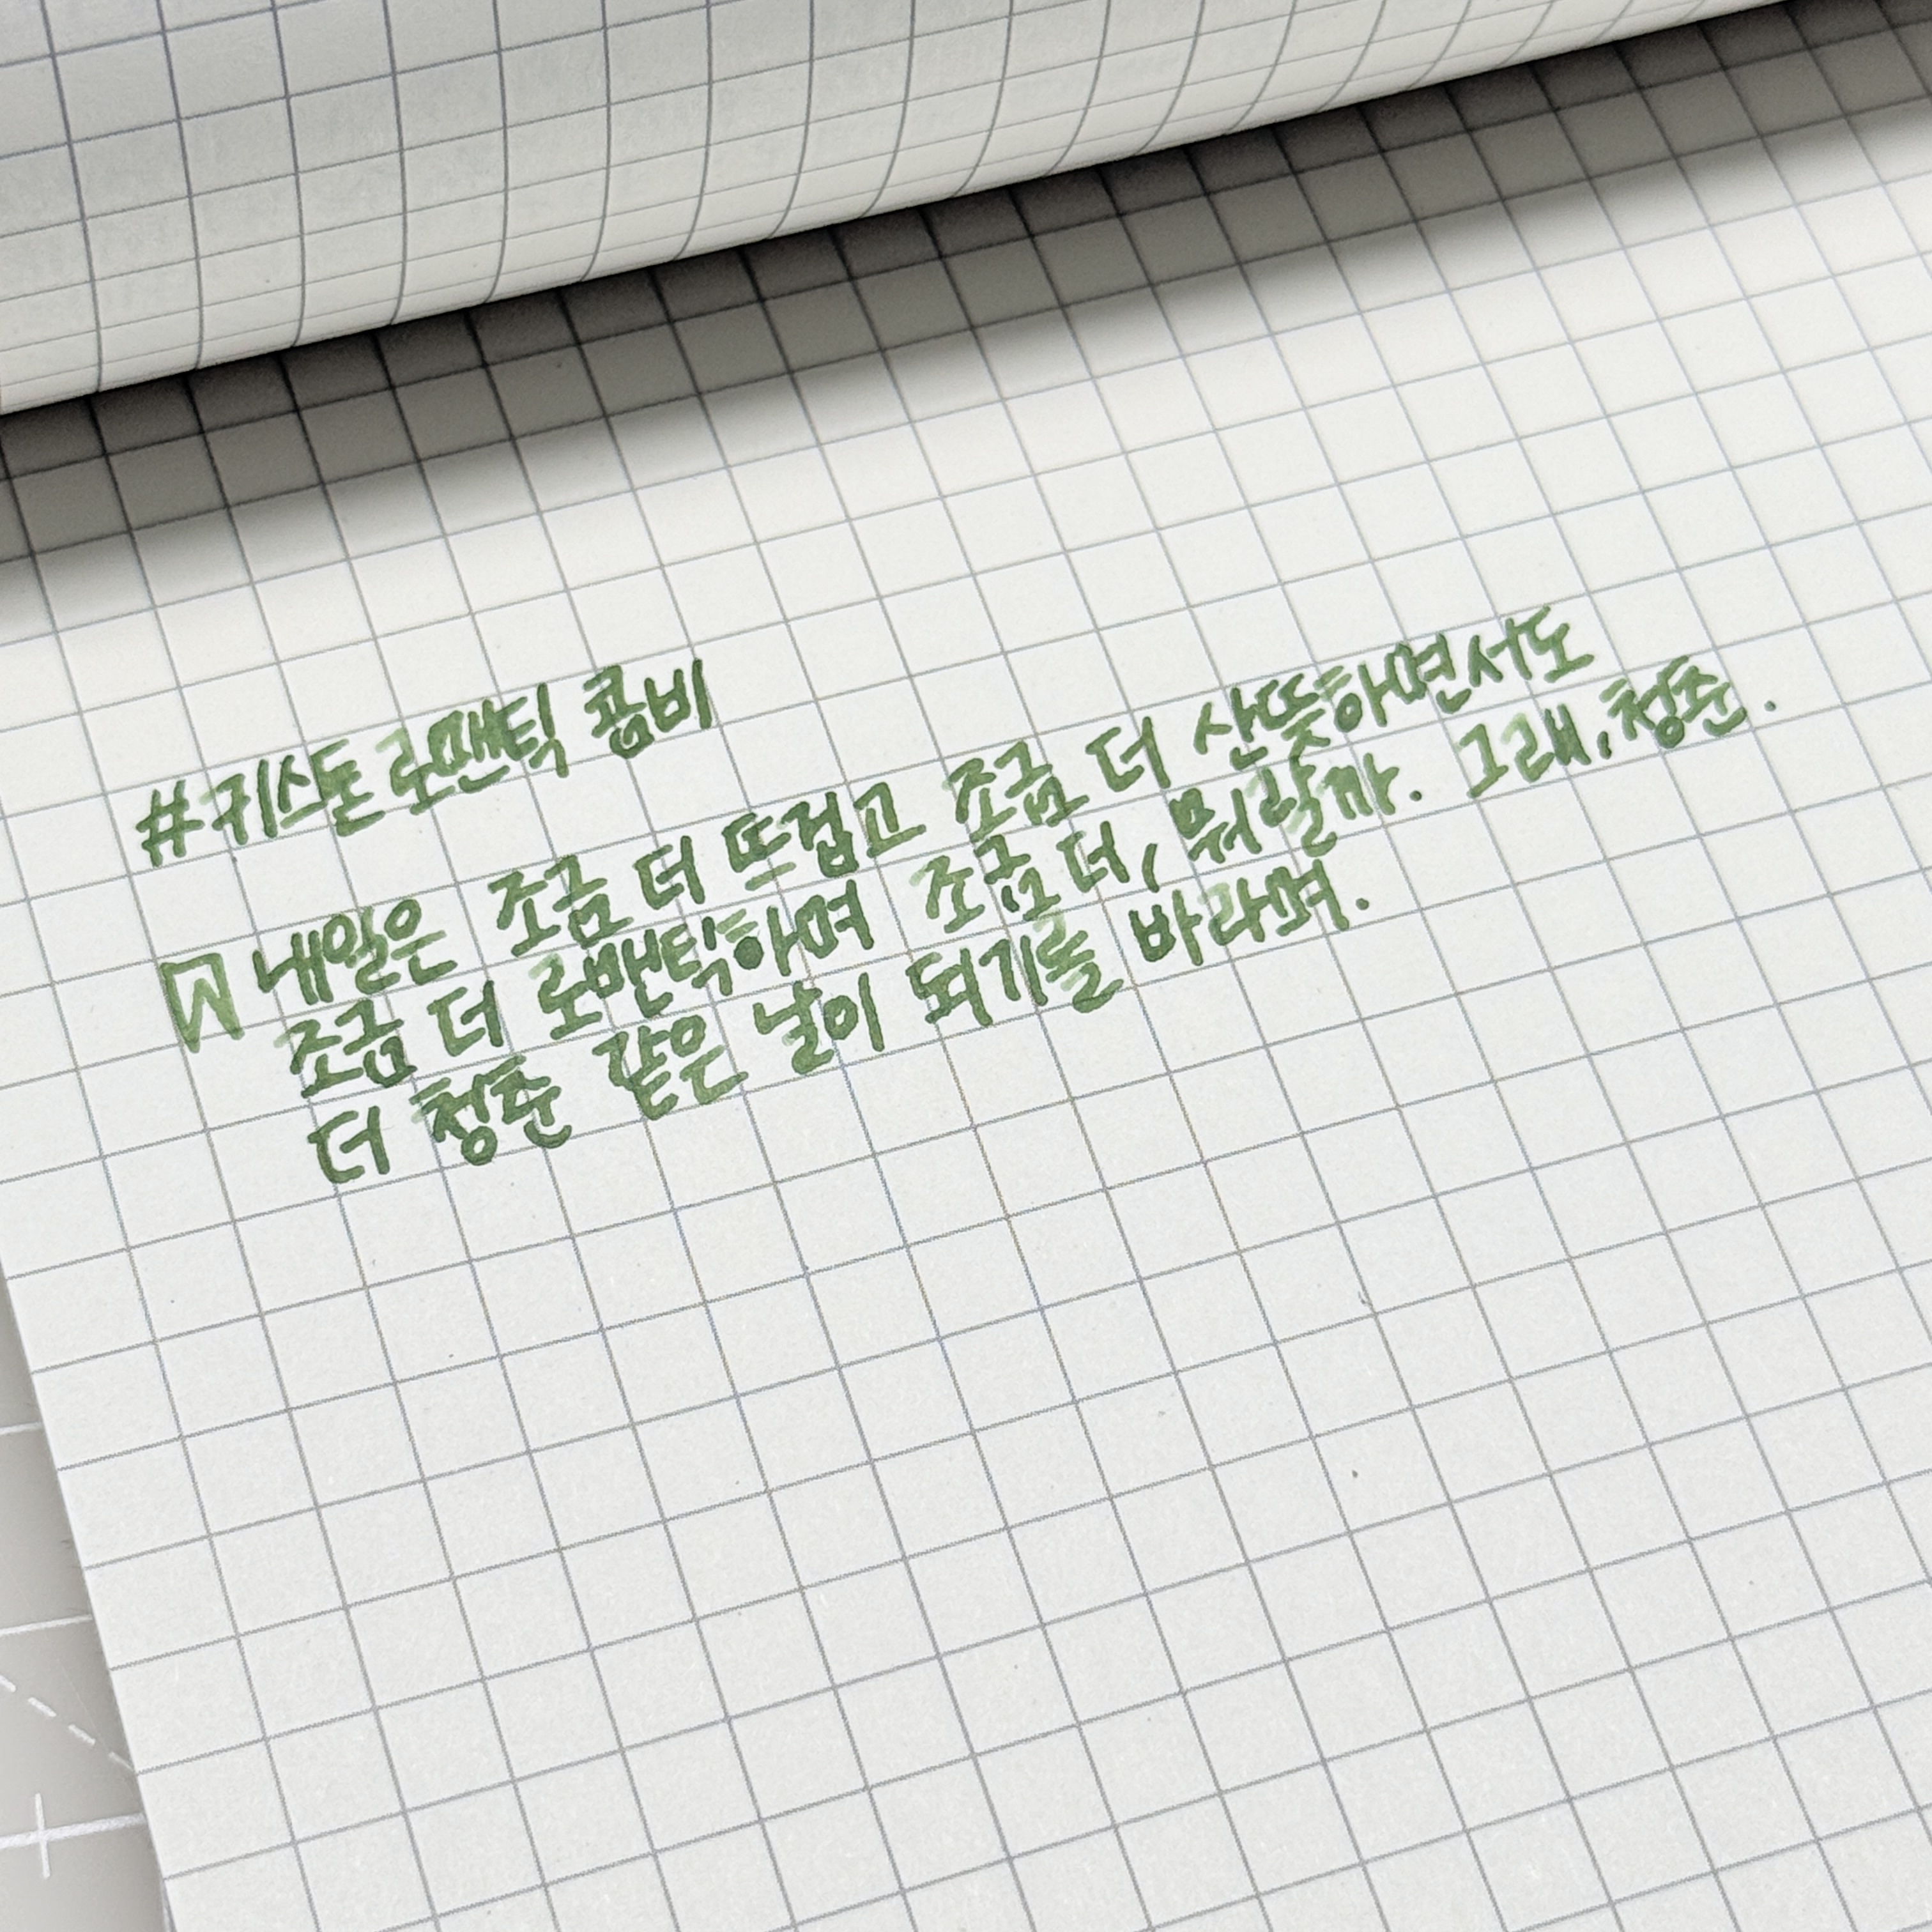 #키스톤 로맨틱 콤비
내일은 조금 더 뜨겁고 조금 더 산뜻하면서도
조금 더 로맨틱하며 조금 더, 뭐랄까. 그래, 청춘.
더 청춘 같은 날이 되기를 바라며.